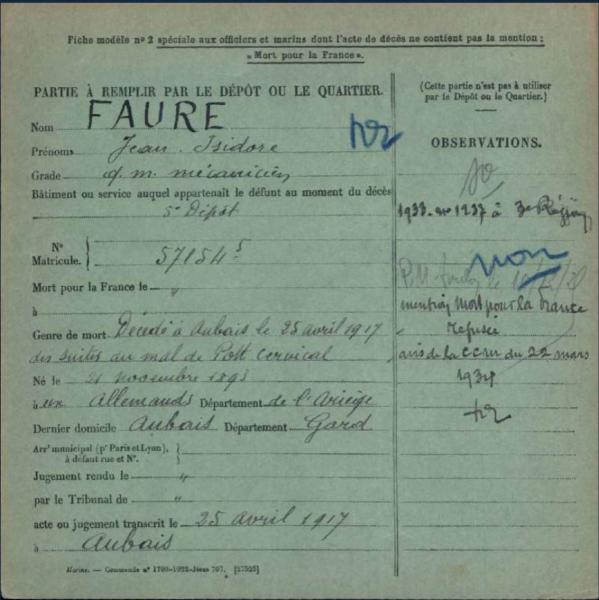 Fiche modèle n° 2 spéciale aux officiers et marins dont l'acte de décès ne contient pas la mention :
« Mort pour la France ».
PARTIE À REMPLIR PAR LE DÉPÔT OU LE QUARTIER.
Nom FAURE
Prénoms Jean Isidore
Grade q. m. mécanicien
Bâtiment ou service auquel appartenait le défunt au moment du décès
5e Dépôt
N° Matricule. 57154 5
Mort pour la France le "
à
Genre de mort Décédé à Aubais le 25 avril 1917
des suites du mal de Pott cervical
Né le 21 novembre 1893
à aux Allemands Département de l'Ariège
Dernier domicile Aubais Département Gard
Arrt municipal (pr Paris et Lyon), à défaut rue et N°.
Jugement rendu le "
par le Tribunal de "
acte ou jugement transcrit le 25 avril 1917
à Aubais
Marine. — Commande n° 1790-1922-Jésus 707. [17525]
(Cette partie n'est pas à utiliser
par le Dépôt ou le Quartier.)
OBSERVATIONS.
1933 n° 1237 à 3e Région
non
mention Mort pour la France
refusée
avis de la CCM du 22 mars
1934